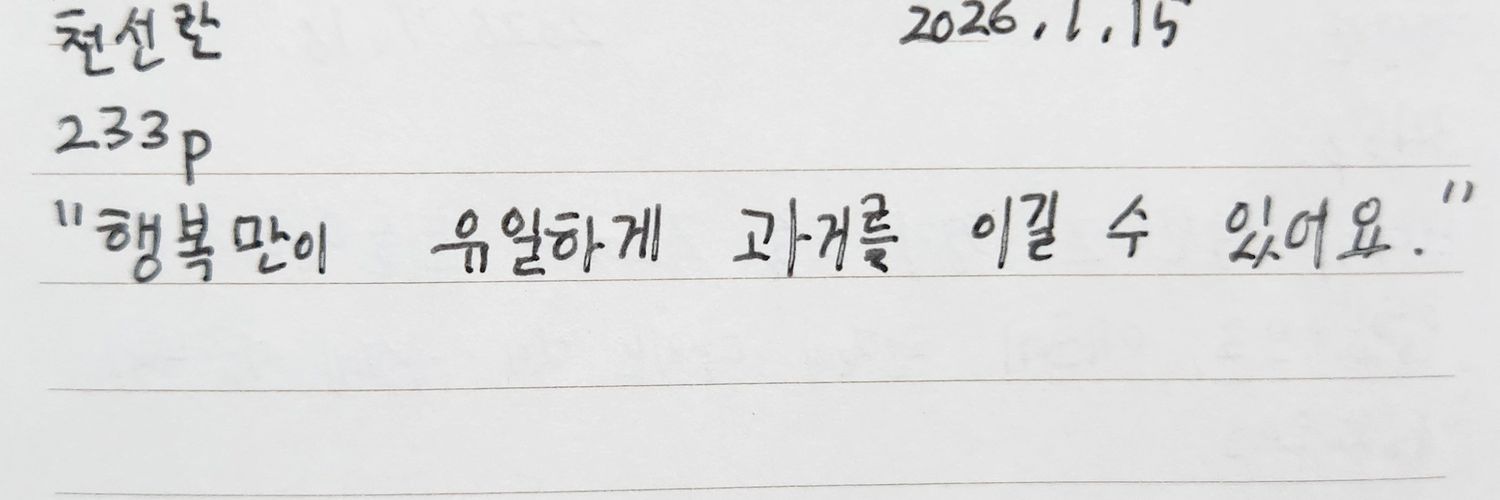 천선란 2026.1.15
233p
"행복만이 유일하게 과거를 이길 수 있어요."